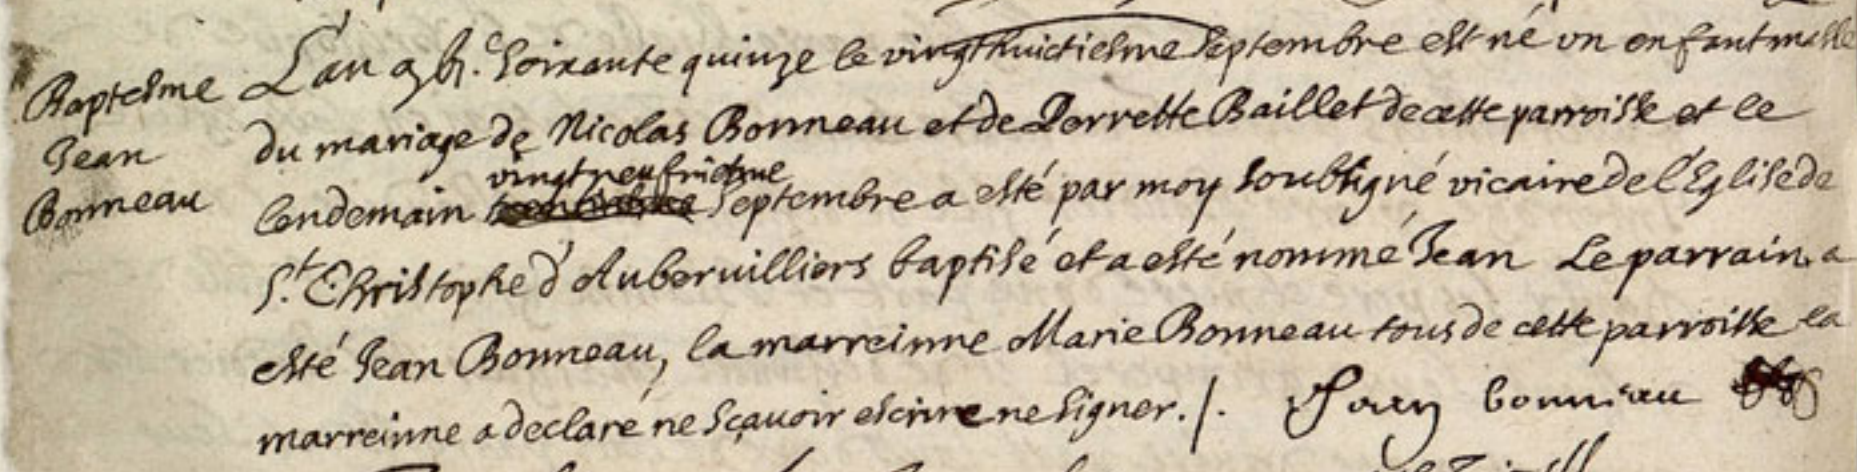 Baptesme
Jean
Bonneau
L'an soixante quinze le vingthuictiesme Septembre est né un enfant masle
du mariage de Nicolas Bonneau et de Perrette Baillet de cette parroisse et le
vingtneufviesme
lendemain Septembre a esté par moy soubsigné vicaire de l'Eglise de
St. Christophe d'Aubervilliers baptisé et a esté nommé Jean Le parrain a
esté Jean Bonneau, la marreinne Marie Bonneau tous de cette parroisse la
marreinne a declaré ne sçavoir escrire ne signer. /. Jean bonneau